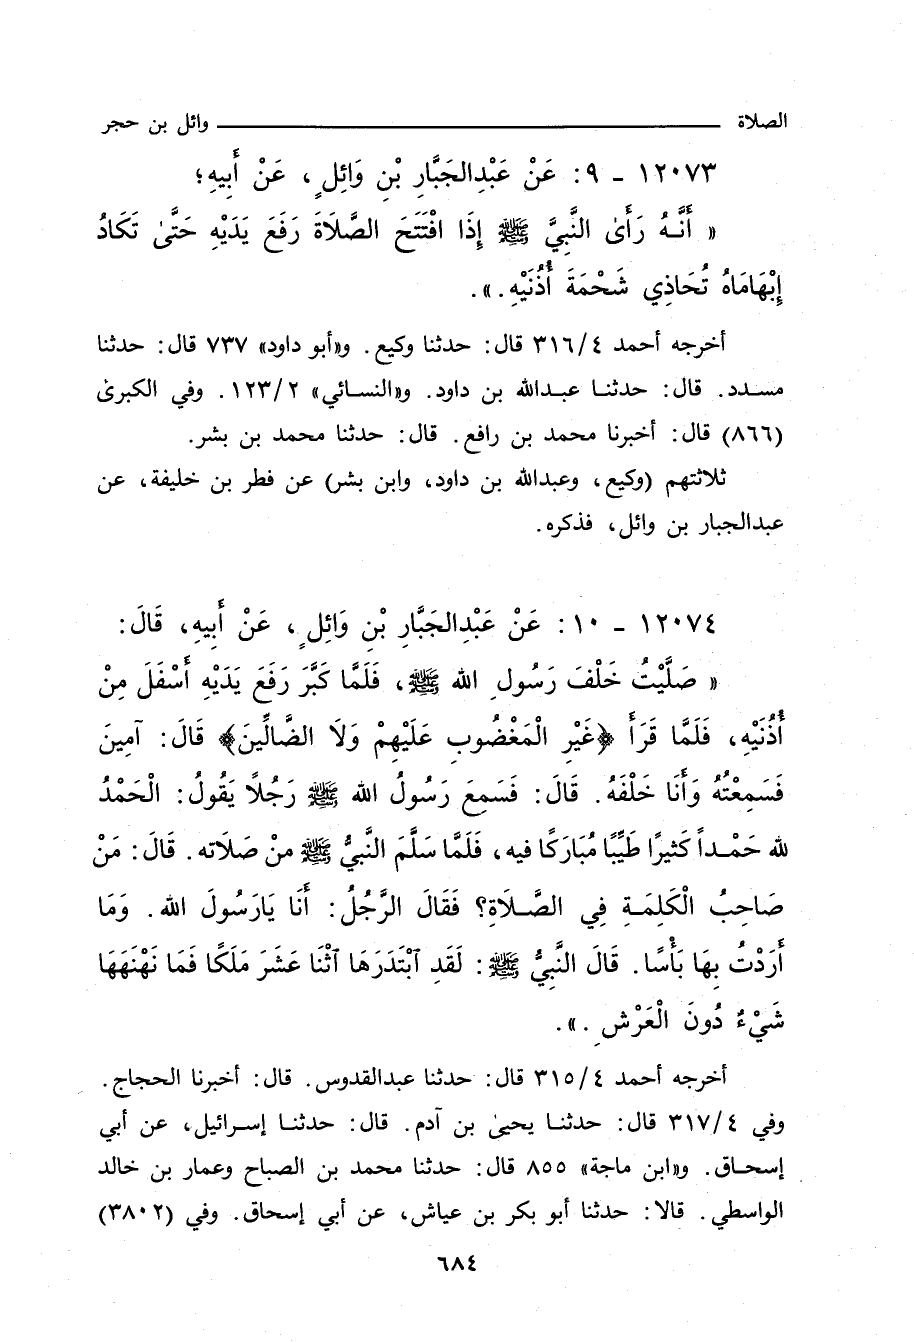 الصلاة وائل بن حجر
١٢٠٧٣ - ٩: عَنْ عَبْدِالجَبَّارِ بْنِ وَائِلٍ، عَنْ أَبِيهِ؛
« أَنَّهُ رَأَىٰ النَّبِيَّ ﷺ إِذَا افْتَتَحَ الصَّلَاةَ رَفَعَ يَدَيْهِ حَتَّىٰ تَكَادُ
إِبْهَامَاهُ تُحَاذِي شَحْمَةَ أُذُنَيْهِ.».
أخرجه أحمد ٣١٦/٤ قال: حدثنا وكيع. و«أبو داود» ٧٣٧ قال: حدثنا
مسدد. قال: حدثنا عبدالله بن داود. و«النسائي» ١٢٣/٢. وفي الكبرىٰ
(٨٦٦) قال: أخبرنا محمد بن رافع. قال: حدثنا محمد بن بشر.
ثلاثتهم (وكيع، وعبدالله بن داود، وابن بشر) عن فطر بن خليفة، عن
عبدالجبار بن وائل، فذكره.
١٢٠٧٤ - ١٠: عَنْ عَبْدِالجَبَّارِ بْنِ وَائِلٍ، عَنْ أَبِيهِ، قَالَ:
« صَلَّيْتُ خَلْفَ رَسُولِ اللهِ ﷺ، فَلَمَّا كَبَّرَ رَفَعَ يَدَيْهِ أَسْفَلَ مِنْ
أُذُنَيْهِ، فَلَمَّا قَرَأَ ﴿غَيْرِ الْمَغْضُوبِ عَلَيْهِمْ وَلَا الضَّالِّينَ﴾ قَالَ: آمِينَ
فَسَمِعْتُهُ وَأَنَا خَلْفَهُ. قَالَ: فَسَمِعَ رَسُولُ اللهِ ﷺ رَجُلًا يَقُولُ: الْحَمْدُ
للهِ حَمْداً كَثيرًا طَيِّبًا مُبَارَكًا فيه، فَلَمَّا سَلَّمَ النَّبِيُّ ﷺ منْ صَلَاته. قَالَ: مَنْ
صَاحِبُ الْكَلِمَةِ فِي الصَّلَاةِ؟ فَقَالَ الرَّجُلُ: أَنَا يَارَسُولَ اللهِ. وَمَا
أَرَدْتُ بِهَا بَأْسًا. قَالَ النَّبِيُّ ﷺ: لَقَدِ ٱبْتَدَرَهَا ٱثْنَا عَشَرَ مَلَكًا فَمَا نَهْنَهَهَا
شَيْءٌ دُونَ الْعَرْشِ.».
أخرجه أحمد ٣١٥/٤ قال: حدثنا عبدالقدوس. قال: أخبرنا الحجاج.
وفي ٣١٧/٤ قال: حدثنا يحيىٰ بن آدم. قال: حدثنا إسرائيل، عن أبي
إسحاق. و«ابن ماجة» ٨٥٥ قال: حدثنا محمد بن الصباح وعمار بن خالد
الواسطي. قالا: حدثنا أبو بكر بن عياش، عن أبي إسحاق. وفي (٣٨٠٢)
٦٨٤